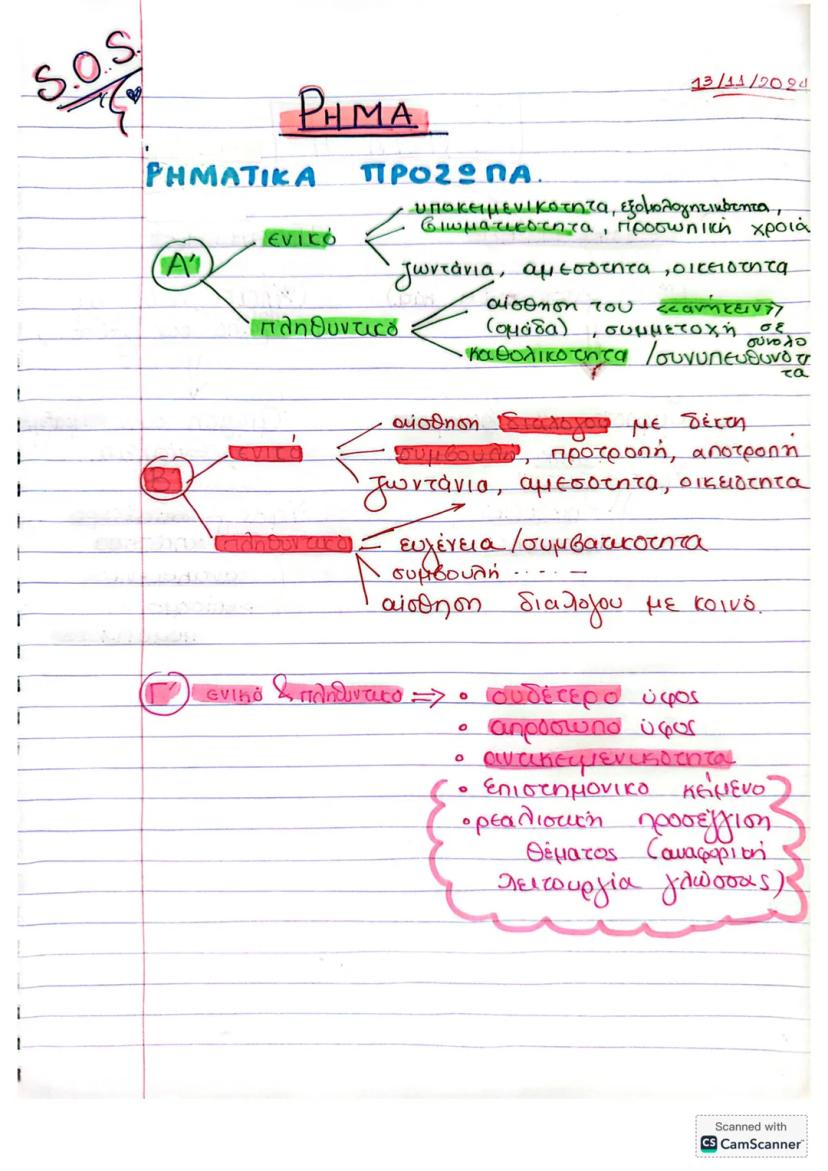 S.O.S.
13/11/2024
ΡΗΜΑ
ΡΗΜΑΤΙΚΑ ΠΡΟΣΩΠΑ.
υποκειμενικότητα, εξομολογητικότητα,
ενικό βιωματικότητα, προσωπική χροιά
Α'
ζωντάνια, αμεσότητα, οικειότητα
αίσθηση του <<ανήκειν>>
πληθυντικό (ομάδα), συμμετοχή σε σύνολο
καθολικότητα / συνυπευθυνότητα
αίσθηση διαλόγου με δέκτη
ενικό συμβουλή, προτροπή, αποτροπή
Β'
ζωντάνια, αμεσότητα, οικειότητα
πληθυντικό ευγένεια / συμβατικότητα
συμβουλή ..... –
αίσθηση διαλόγου με κοινό.
Γ' ενικό & πληθυντικό ⇒ • ουδέτερο ύφος
• απρόσωπο ύφος
• αντικειμενικότητα
• επιστημονικό κείμενο
• ρεαλιστική προσέγγιση
θέματος (αναφορική
λειτουργία γλώσσας)
Scanned with
CS CamScanner